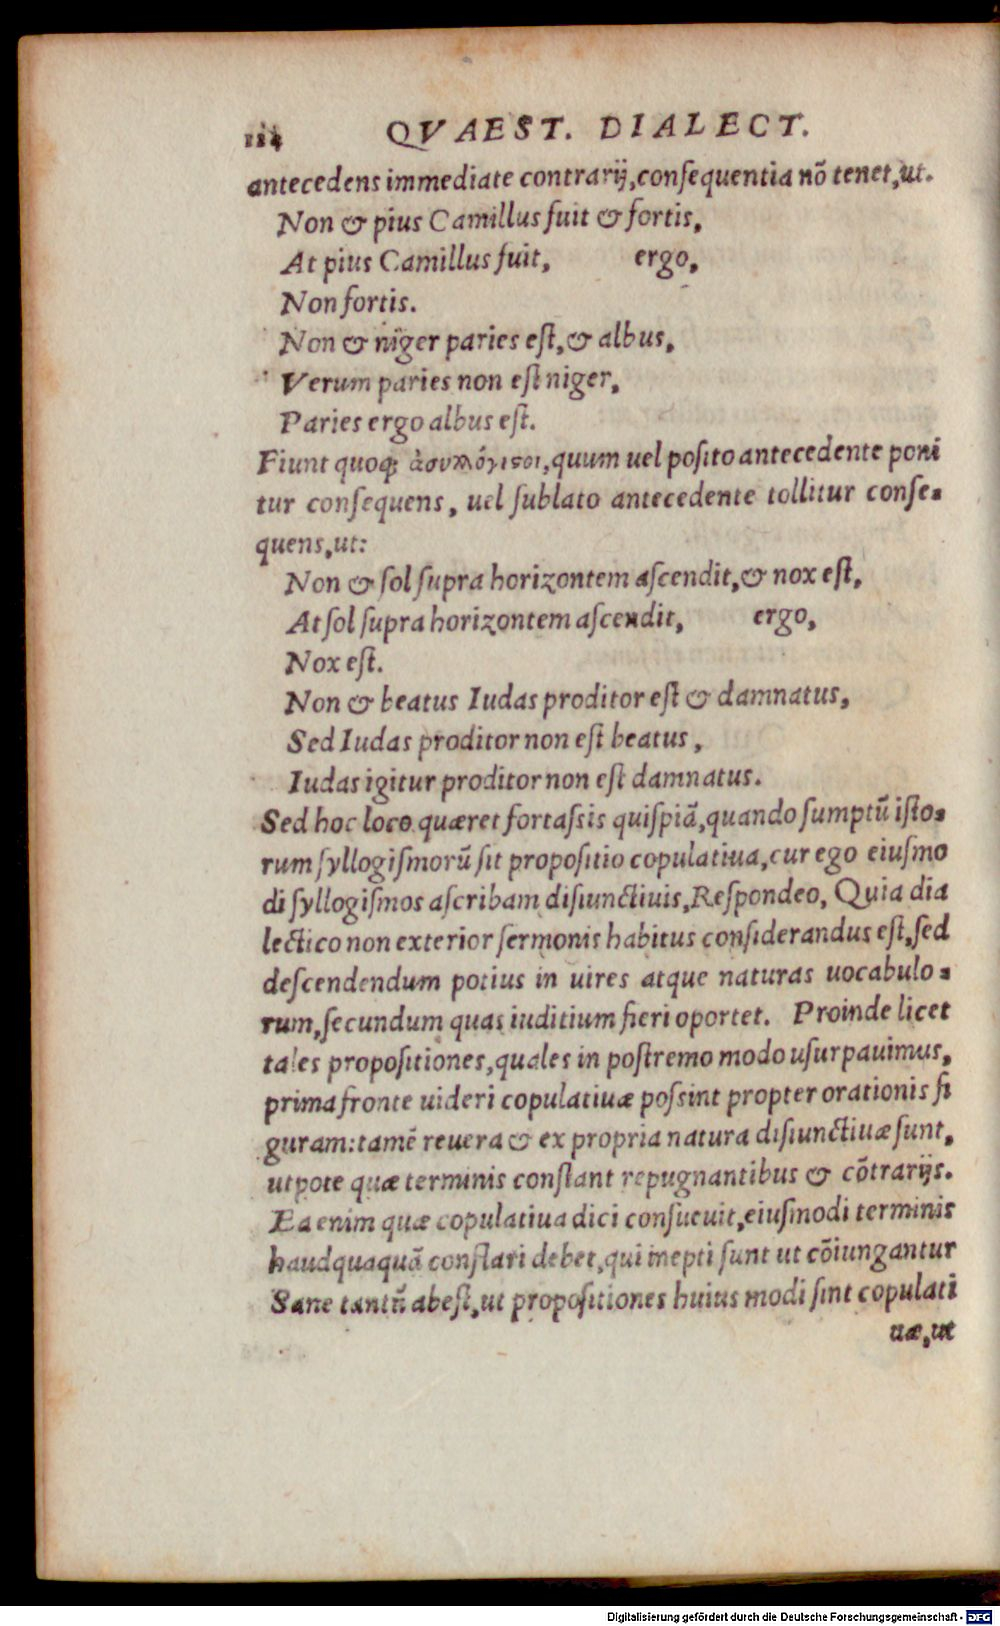 114 QVAEST. DIALECT.
antecedens immediate contrarij, consequentia nõ tenet, ut.
Non & pius Camillus fuit & fortis,
At pius Camillus fuit, ergo,
Non fortis.
Non & niger paries est, & albus,
Verum paries non est niger,
Paries ergo albus est.
Fiunt quoq; ἀσυλλόγιστοι, quum uel posito antecedente poni
tur consequens, uel sublato antecedente tollitur conse-
quens, ut:
Non & sol supra horizontem ascendit, & nox est,
At sol supra horizontem ascendit, ergo,
Nox est.
Non & beatus Iudas proditor est & damnatus,
Sed Iudas proditor non est beatus,
Iudas igitur proditor non est damnatus.
Sed hoc loco quæret fortassis quispiã, quando sumptũ isto-
rum syllogismorũ sit propositio copulatiua, cur ego eiusmo
di syllogismos ascribam disiunctiuis, Respondeo, Quia dia
lectico non exterior sermonis habitus considerandus est, sed
descendendum potius in uires atque naturas uocabulo-
rum, secundum quas iuditium fieri oportet. Proinde licet
tales propositiones, quales in postremo modo usurpauimus,
prima fronte uideri copulatiuæ possint propter orationis fi
guram: tamẽ reuera & ex propria natura disiunctiuæ sunt,
utpote quæ terminis constant repugnantibus & cõtrarijs.
Ea enim quæ copulatiua dici consueuit, eiusmodi terminis
haudquaquã constari debet, qui inepti sunt ut cõiungantur
Sane tantũ abest, ut propositiones huius modi sint copulati
uæ, ut
Digitalisierung gefördert durch die Deutsche Forschungsgemeinschaft - DFG